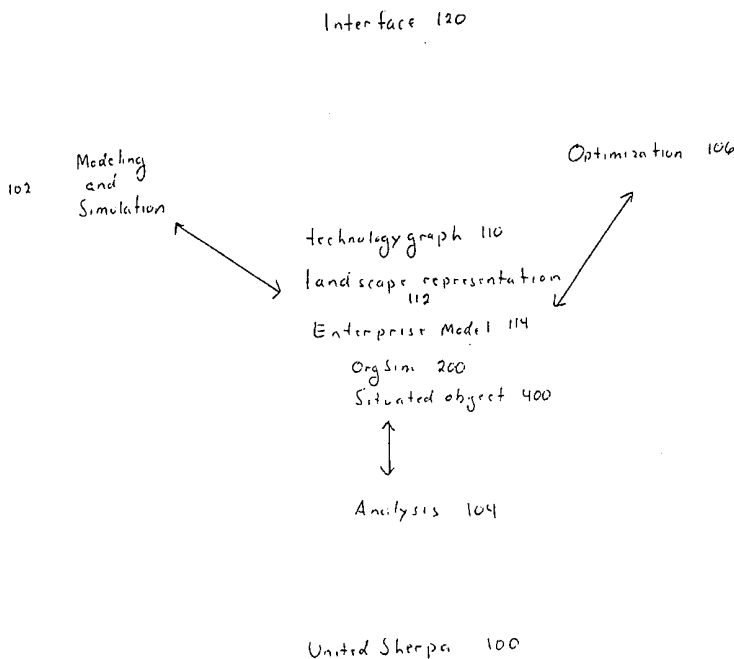 Interface 120
Optimization 106
Modeling
102 and
Simulation
technology graph 110
landscape representation
112
Enterprise Model 114
OrgSim 200
Situated object 400
Analysis 104
United Sherpa 100